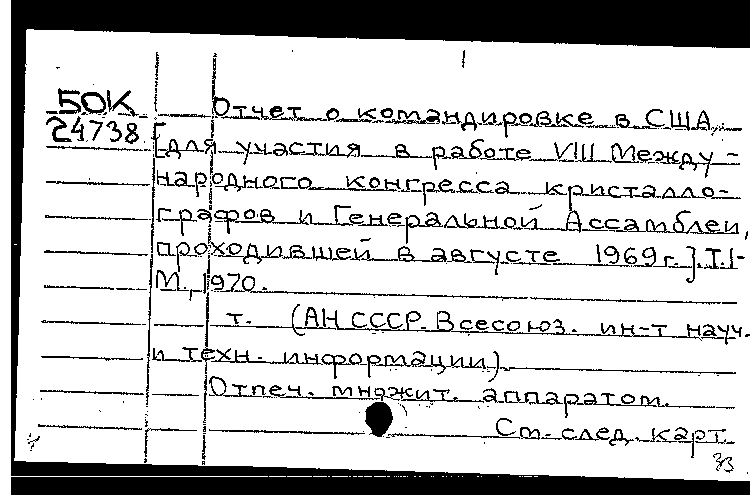 БОК
24738
Отчет о командировке в США.
[для участия в работе VIII Между-
народного конгресса кристалло-
графов и Генеральной Ассамблеи,
проходившей в августе 1969 г.]. Т.1-
М., 1970.
т. (АН СССР. Всесоюз. ин-т науч.
и техн. информации).
Отпеч. множит. аппаратом.
См. след. карт.
33